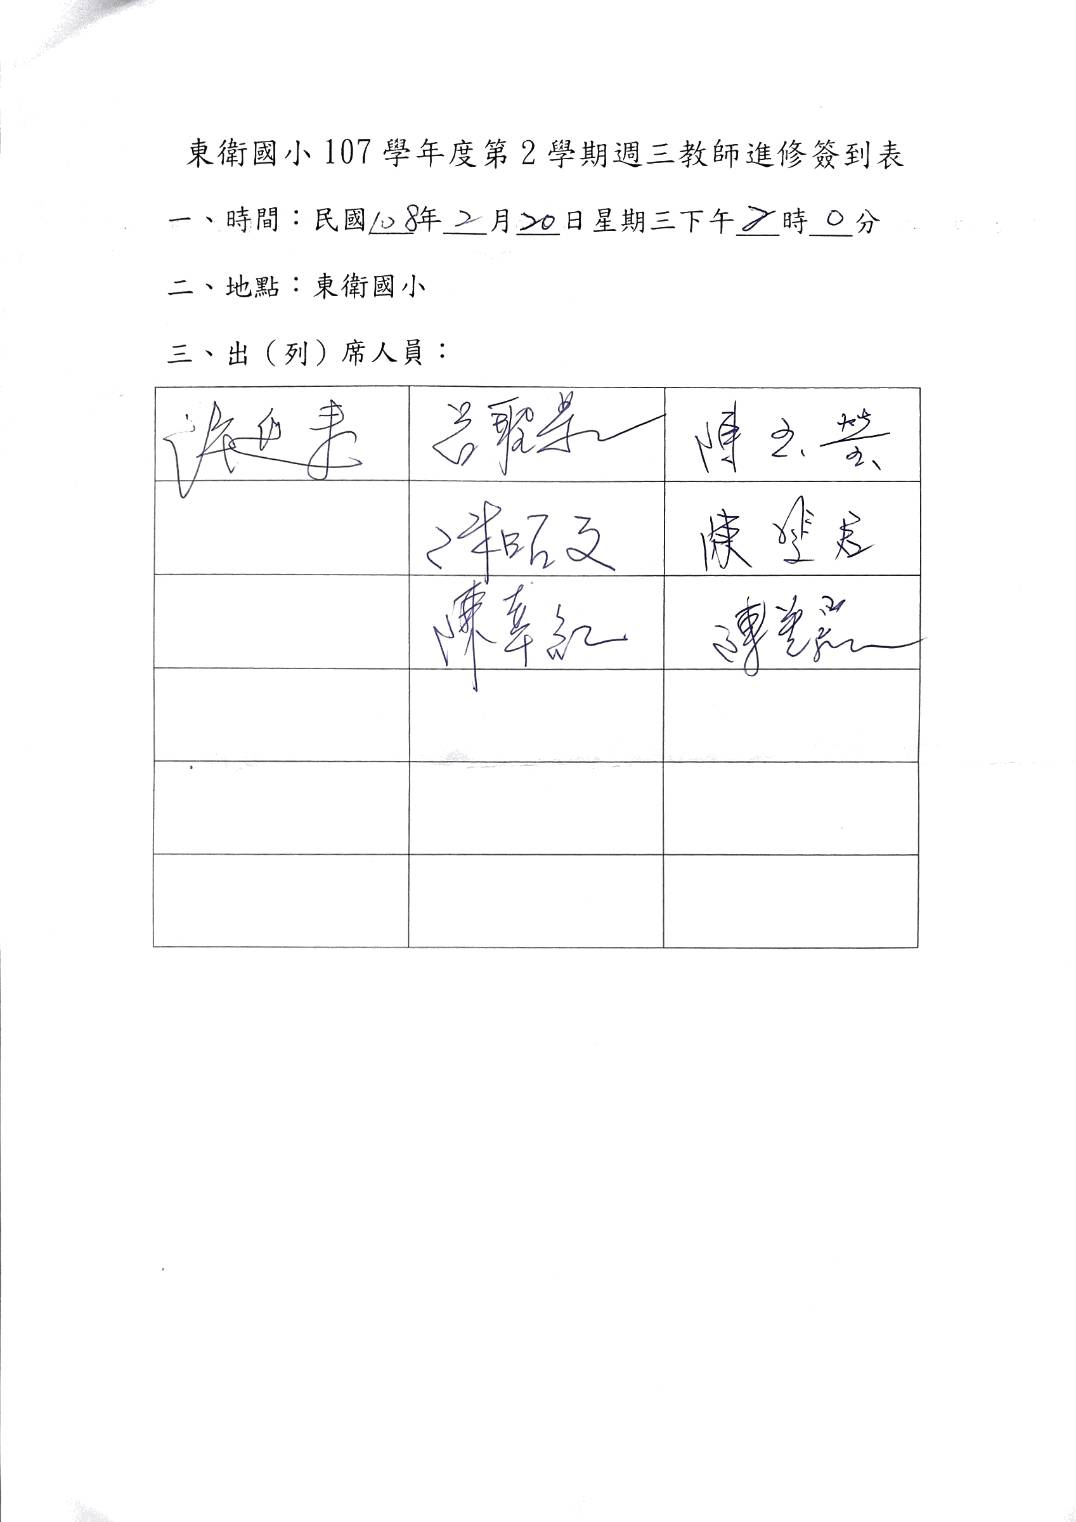 東衛國小107學年度第2學期週三教師進修簽到表
一、時間：民國108年2月20日星期三下午2時0分
二、地點：東衛國小
三、出（列）席人員：
呂 陳玉瑩
洪昭文 陳 君
陳幸紅 陳美